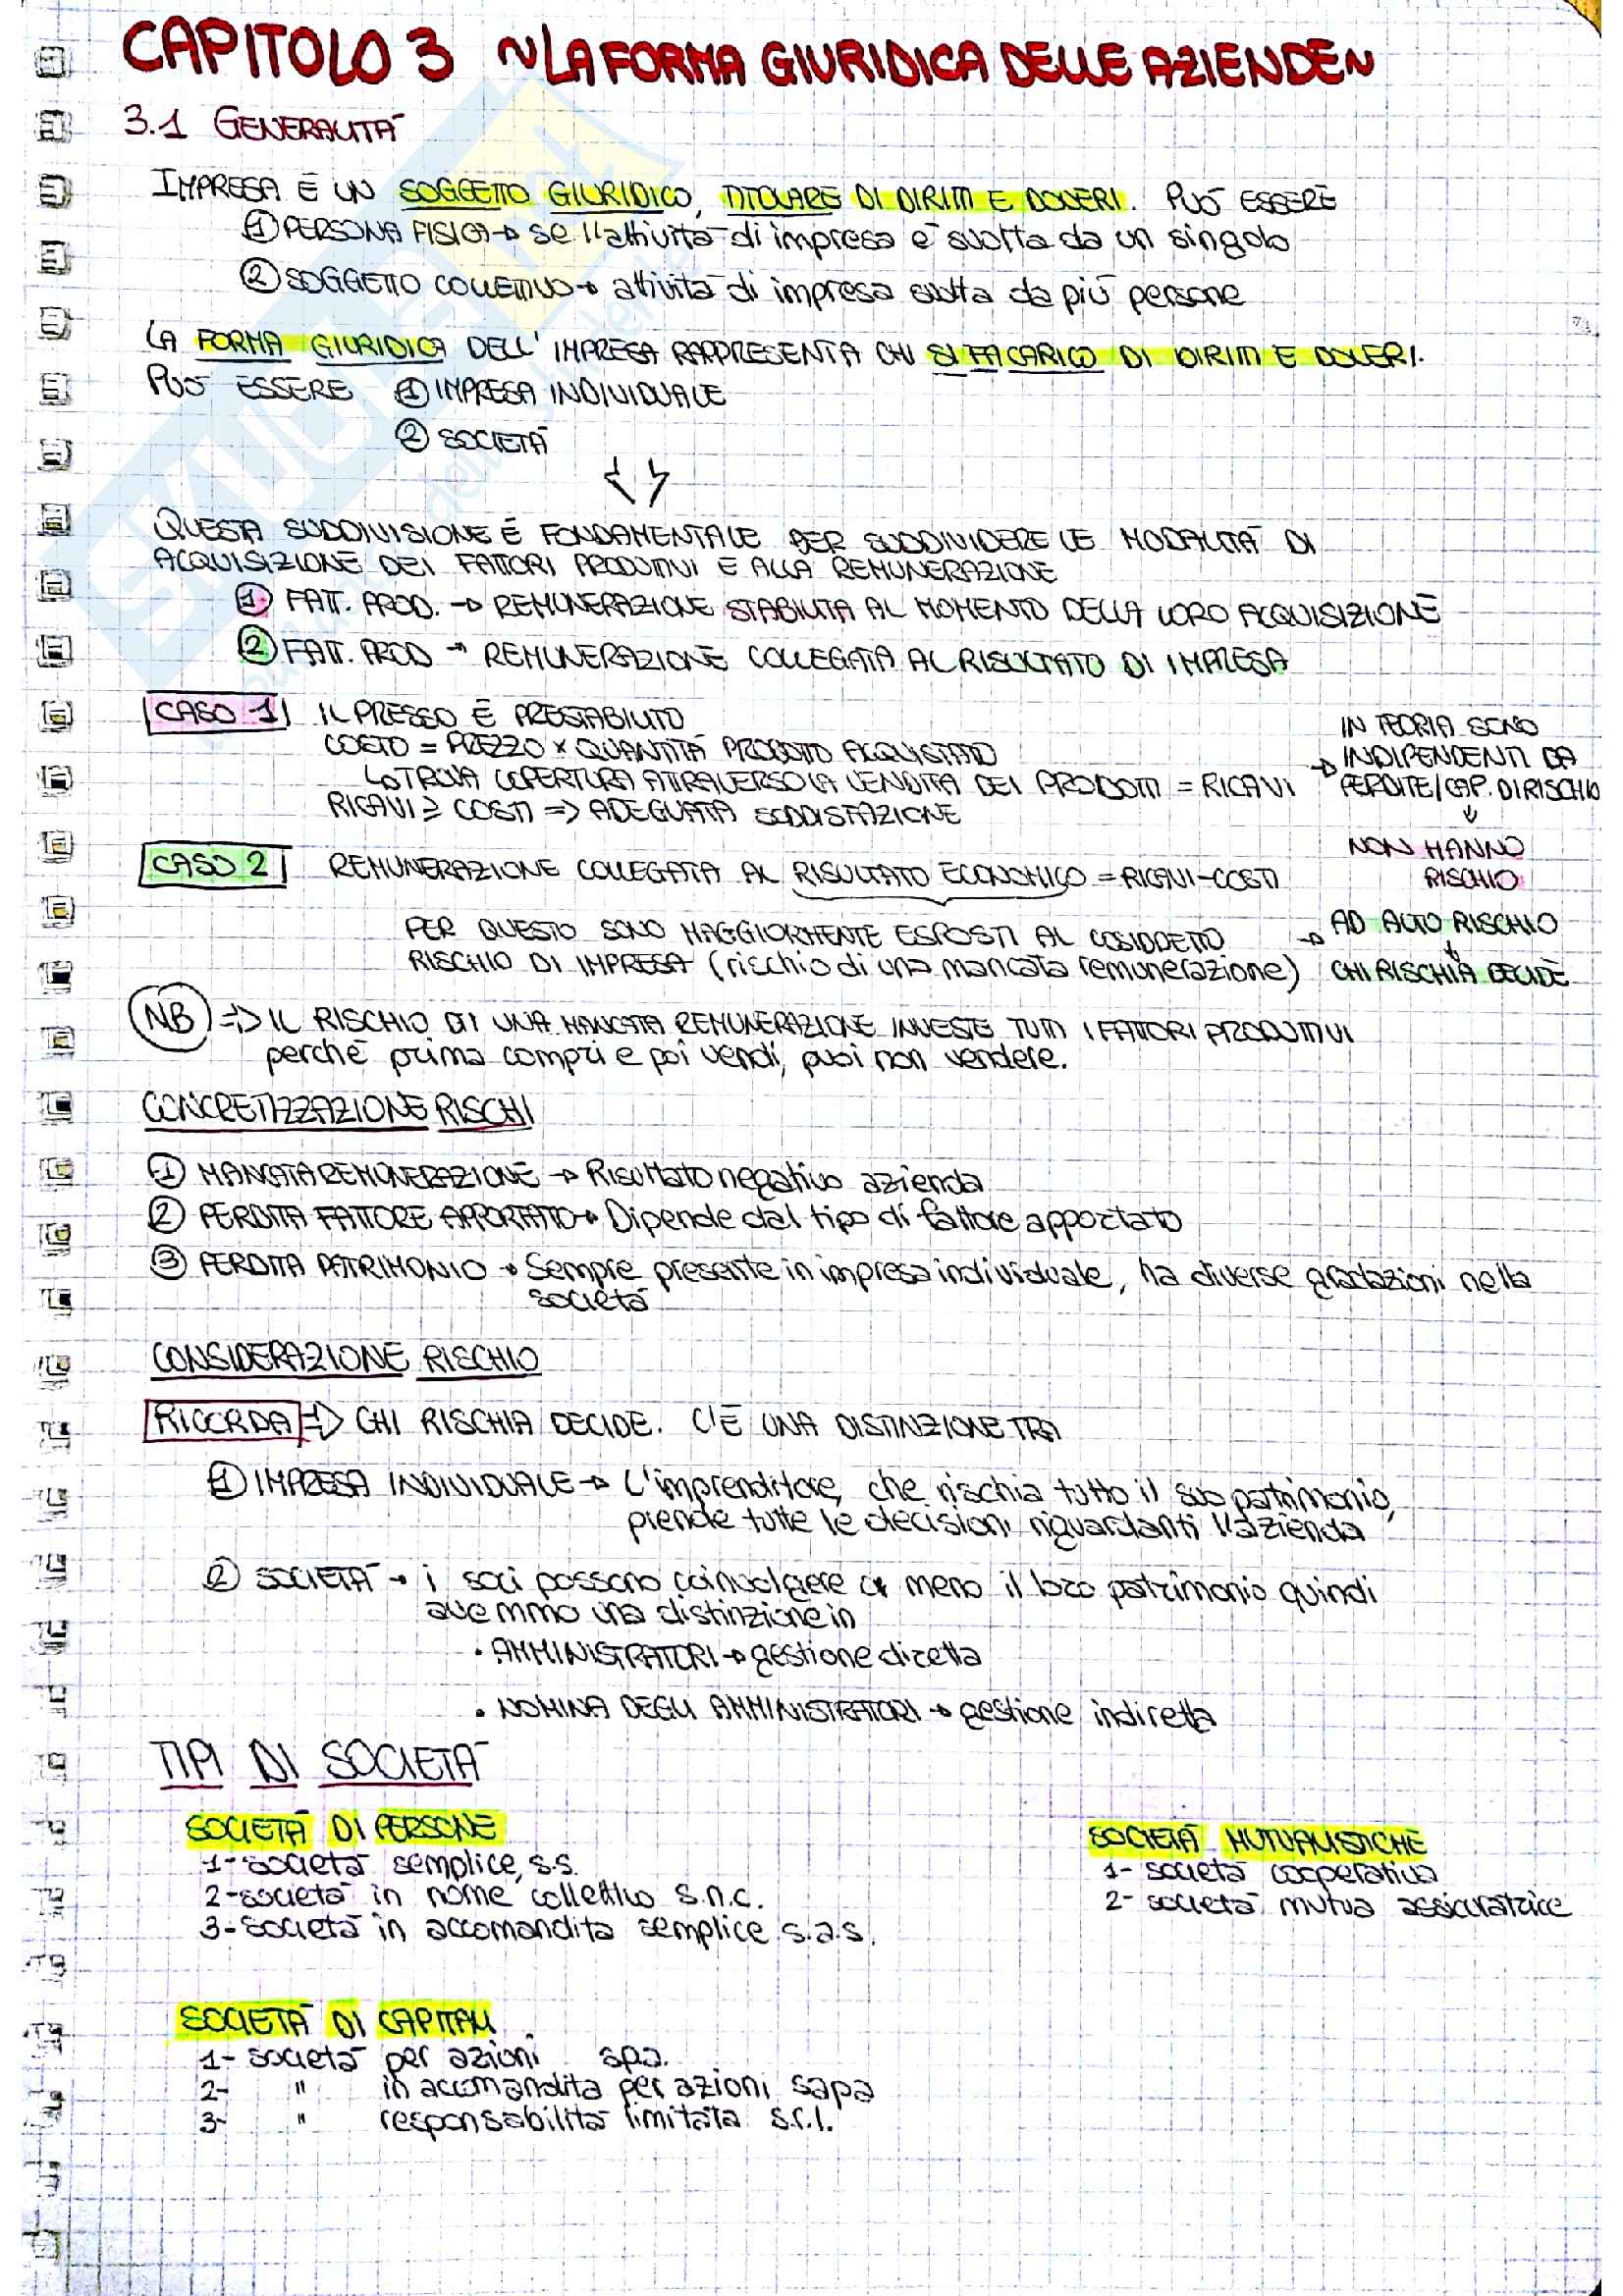 CAPITOLO 3 ~ LA FORMA GIURIDICA DELLE AZIENDE ~
3.1 GENERALITÀ
IMPRESA È UN SOGGETTO GIURIDICO, TITOLARE DI DIRITTI E DOVERI. PUÒ ESSERE
① PERSONA FISICA → se l'attività di impresa è svolta da un singolo
② SOGGETTO COLLETTIVO → attività di impresa svolta da più persone
LA FORMA GIURIDICA DELL'IMPRESA RAPPRESENTA CHI SI FA CARICO DI DIRITTI E DOVERI.
PUÒ ESSERE ① IMPRESA INDIVIDUALE
② SOCIETÀ
QUESTA SUDDIVISIONE È FONDAMENTALE PER SUDDIVIDERE LE MODALITÀ DI
ACQUISIZIONE DEI FATTORI PRODUTTIVI E ALLA REMUNERAZIONE
① FATT. PROD. → REMUNERAZIONE STABILITA AL MOMENTO DELLA LORO ACQUISIZIONE
② FATT. PROD → REMUNERAZIONE COLLEGATA AL RISULTATO DI IMPRESA
CASO 1 IL PRESSO È PRESTABILITO
COSTO = PREZZO × QUANTITÀ PRODOTTO ACQUISTATO
↳ TROVA COPERTURA ATTRAVERSO LA VENDITA DEI PRODOTTI = RICAVI
RICAVI ≥ COSTI => ADEGUATA SODDISFAZIONE
→ IN TEORIA SONO
INDIPENDENTI DA
PERDITE/CAP. DI RISCHIO
↓
NON HANNO
RISCHIO
CASO 2 REMUNERAZIONE COLLEGATA AL RISULTATO ECONOMICO = RICAVI-COSTI
PER QUESTO SONO MAGGIORMENTE ESPOSTI AL COSIDDETTO
RISCHIO DI IMPRESA (rischio di una mancata remunerazione)
→ AD ALTO RISCHIO
↓
CHI RISCHIA DECIDE
NB => IL RISCHIO DI UNA MANCATA REMUNERAZIONE INVESTE TUTTI I FATTORI PRODUTTIVI
perché prima compri e poi vendi, puoi non vendere.
CONCRETIZZAZIONE RISCHI
① MANCATA REMUNERAZIONE → Risultato negativo azienda
② PERDITA FATTORE APPORTATO → Dipende dal tipo di fattore apportato
③ PERDITA PATRIMONIO → Sempre presente in impresa individuale, ha diverse gradazioni nella
società
CONSIDERAZIONE RISCHIO
RICORDA => CHI RISCHIA DECIDE. C'È UNA DISTINZIONE TRA
① IMPRESA INDIVIDUALE → L'imprenditore, che rischia tutto il suo patrimonio,
prende tutte le decisioni riguardanti l'azienda
② SOCIETÀ → i soci possono coinvolgere o meno il loro patrimonio quindi
avremmo una distinzione in
• AMMINISTRATORI → gestione diretta
• NOMINA DEGLI AMMINISTRATORI → gestione indiretta
TIPI DI SOCIETÀ
SOCIETÀ DI PERSONE
1- società semplice, s.s.
2- società in nome collettivo s.n.c.
3- Società in accomandita semplice s.a.s.
SOCIETÀ MUTUALISTICHE
1- società cooperativa
2- società mutua assicuratrice
SOCIETÀ DI CAPITALI
1- società per azioni spa.
2- " in accomandita per azioni sapa
3- " responsabilità limitata s.r.l.